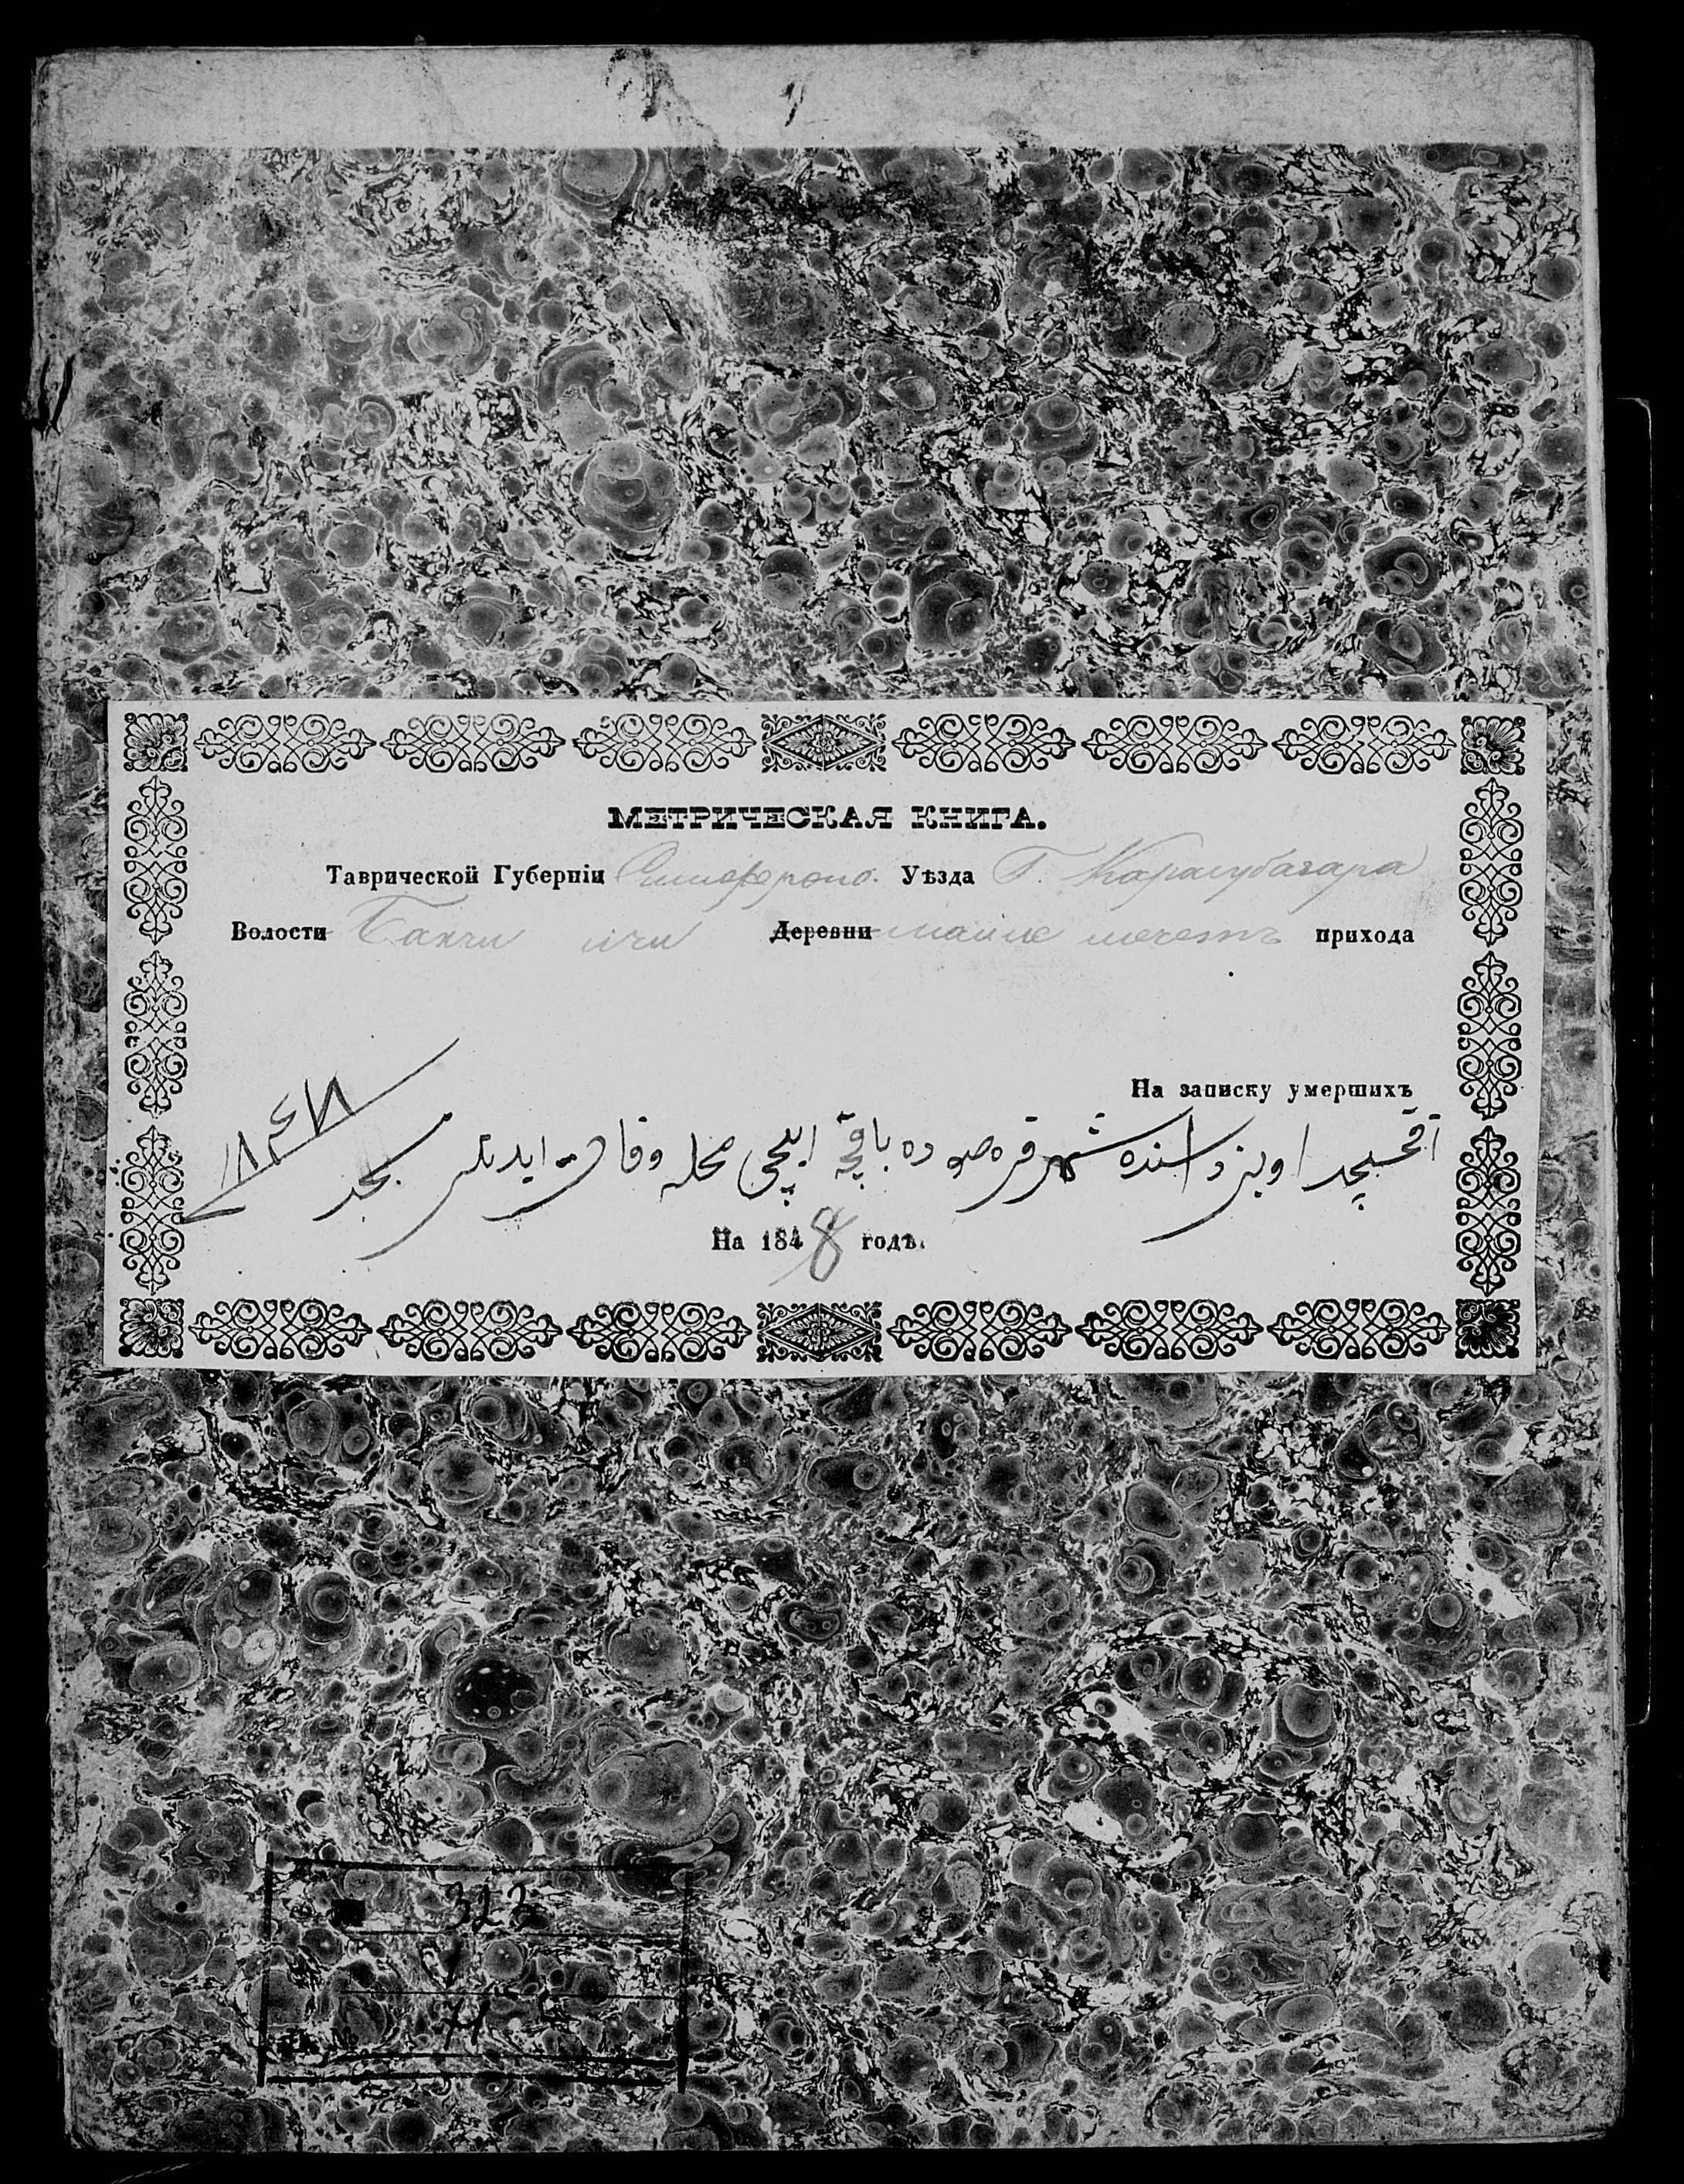 МЕТРИЧЕСКАЯ КНИГА.
Таврической Губерніи Симфероп. Уѣзда Г. Карасубазара
Волости Бакчи ичи Деревни мечеть прихода
На записку умершихъ
آقمسجد اویزداسنده شهر قره صوده باقچه ایچی محله وفات ایدنلر
١٨٤٨
На 1848 годъ.
323
1